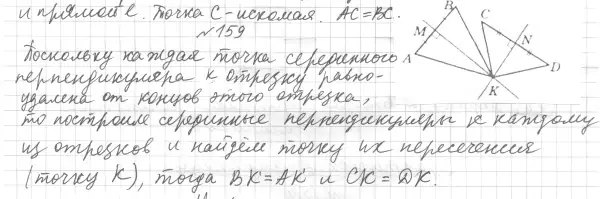 и прямой ℓ. Точка С - искомая. АС=ВС.
№159
Поскольку каждая точка серединного
перпендикуляра к отрезку равно-
удалена от концов этого отрезка,
то построив серединные перпендикуляры к каждому
из отрезков и найдём точку их пересечения
(точку К), тогда ВК=АК и СК=DК.
B
C
M
N
A
D
K